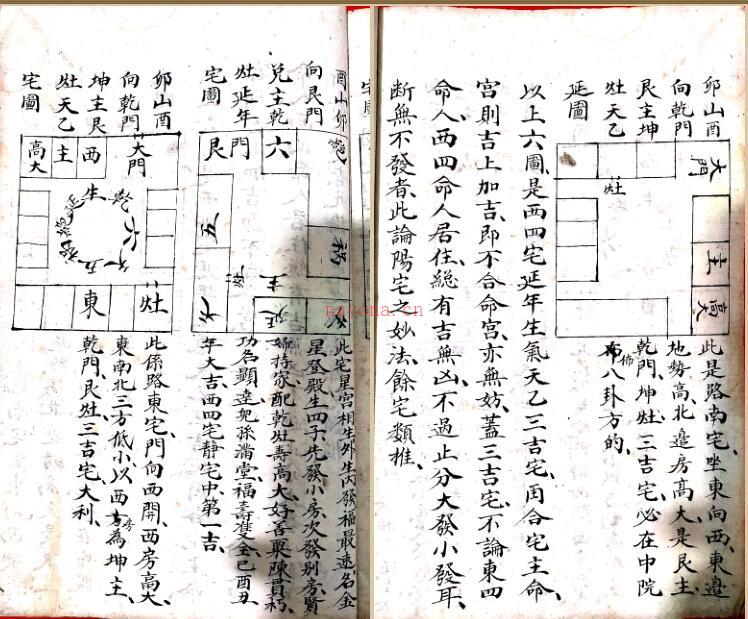 卯山酉
向乾門
艮主坤
灶天乙
延圖
大門
灶
主
高大
此是路南宅坐東向西東邉
地勢高北邉房高大是艮主
乾門坤灶三吉宅必在中院
佈八卦方的
以上六圖是西四宅延年生氣天乙三吉宅再合宅主命
宮則吉上加吉即不合命宮亦無妨蓋三吉宅不論東四
命人西四命人居住總有吉無凶不過止分大發小發耳
断無不發者此論陽宅之妙法餘宅類推
酉山卯
向艮門
兌主乾
灶延年
宅圖
艮門
六
五
主
延
此宅星宮相生外生内發福最速名金
星登殿生四子先發小房次發别房賢
婦持家配乾灶壽高大好善粟陳貫朽
功名顯達兒孫滿堂福壽雙全巳酉丑
年大吉西四宅静宅中第一吉
卯山酉
向乾門
坤主艮
灶天乙
宅圖
大門
西
主
高大
生
延
禍
五
六
東
灶
此係路東宅門向西開西房高大
東南北三方低小以西房為坤主
乾門艮灶三吉宅大利
navona.cn